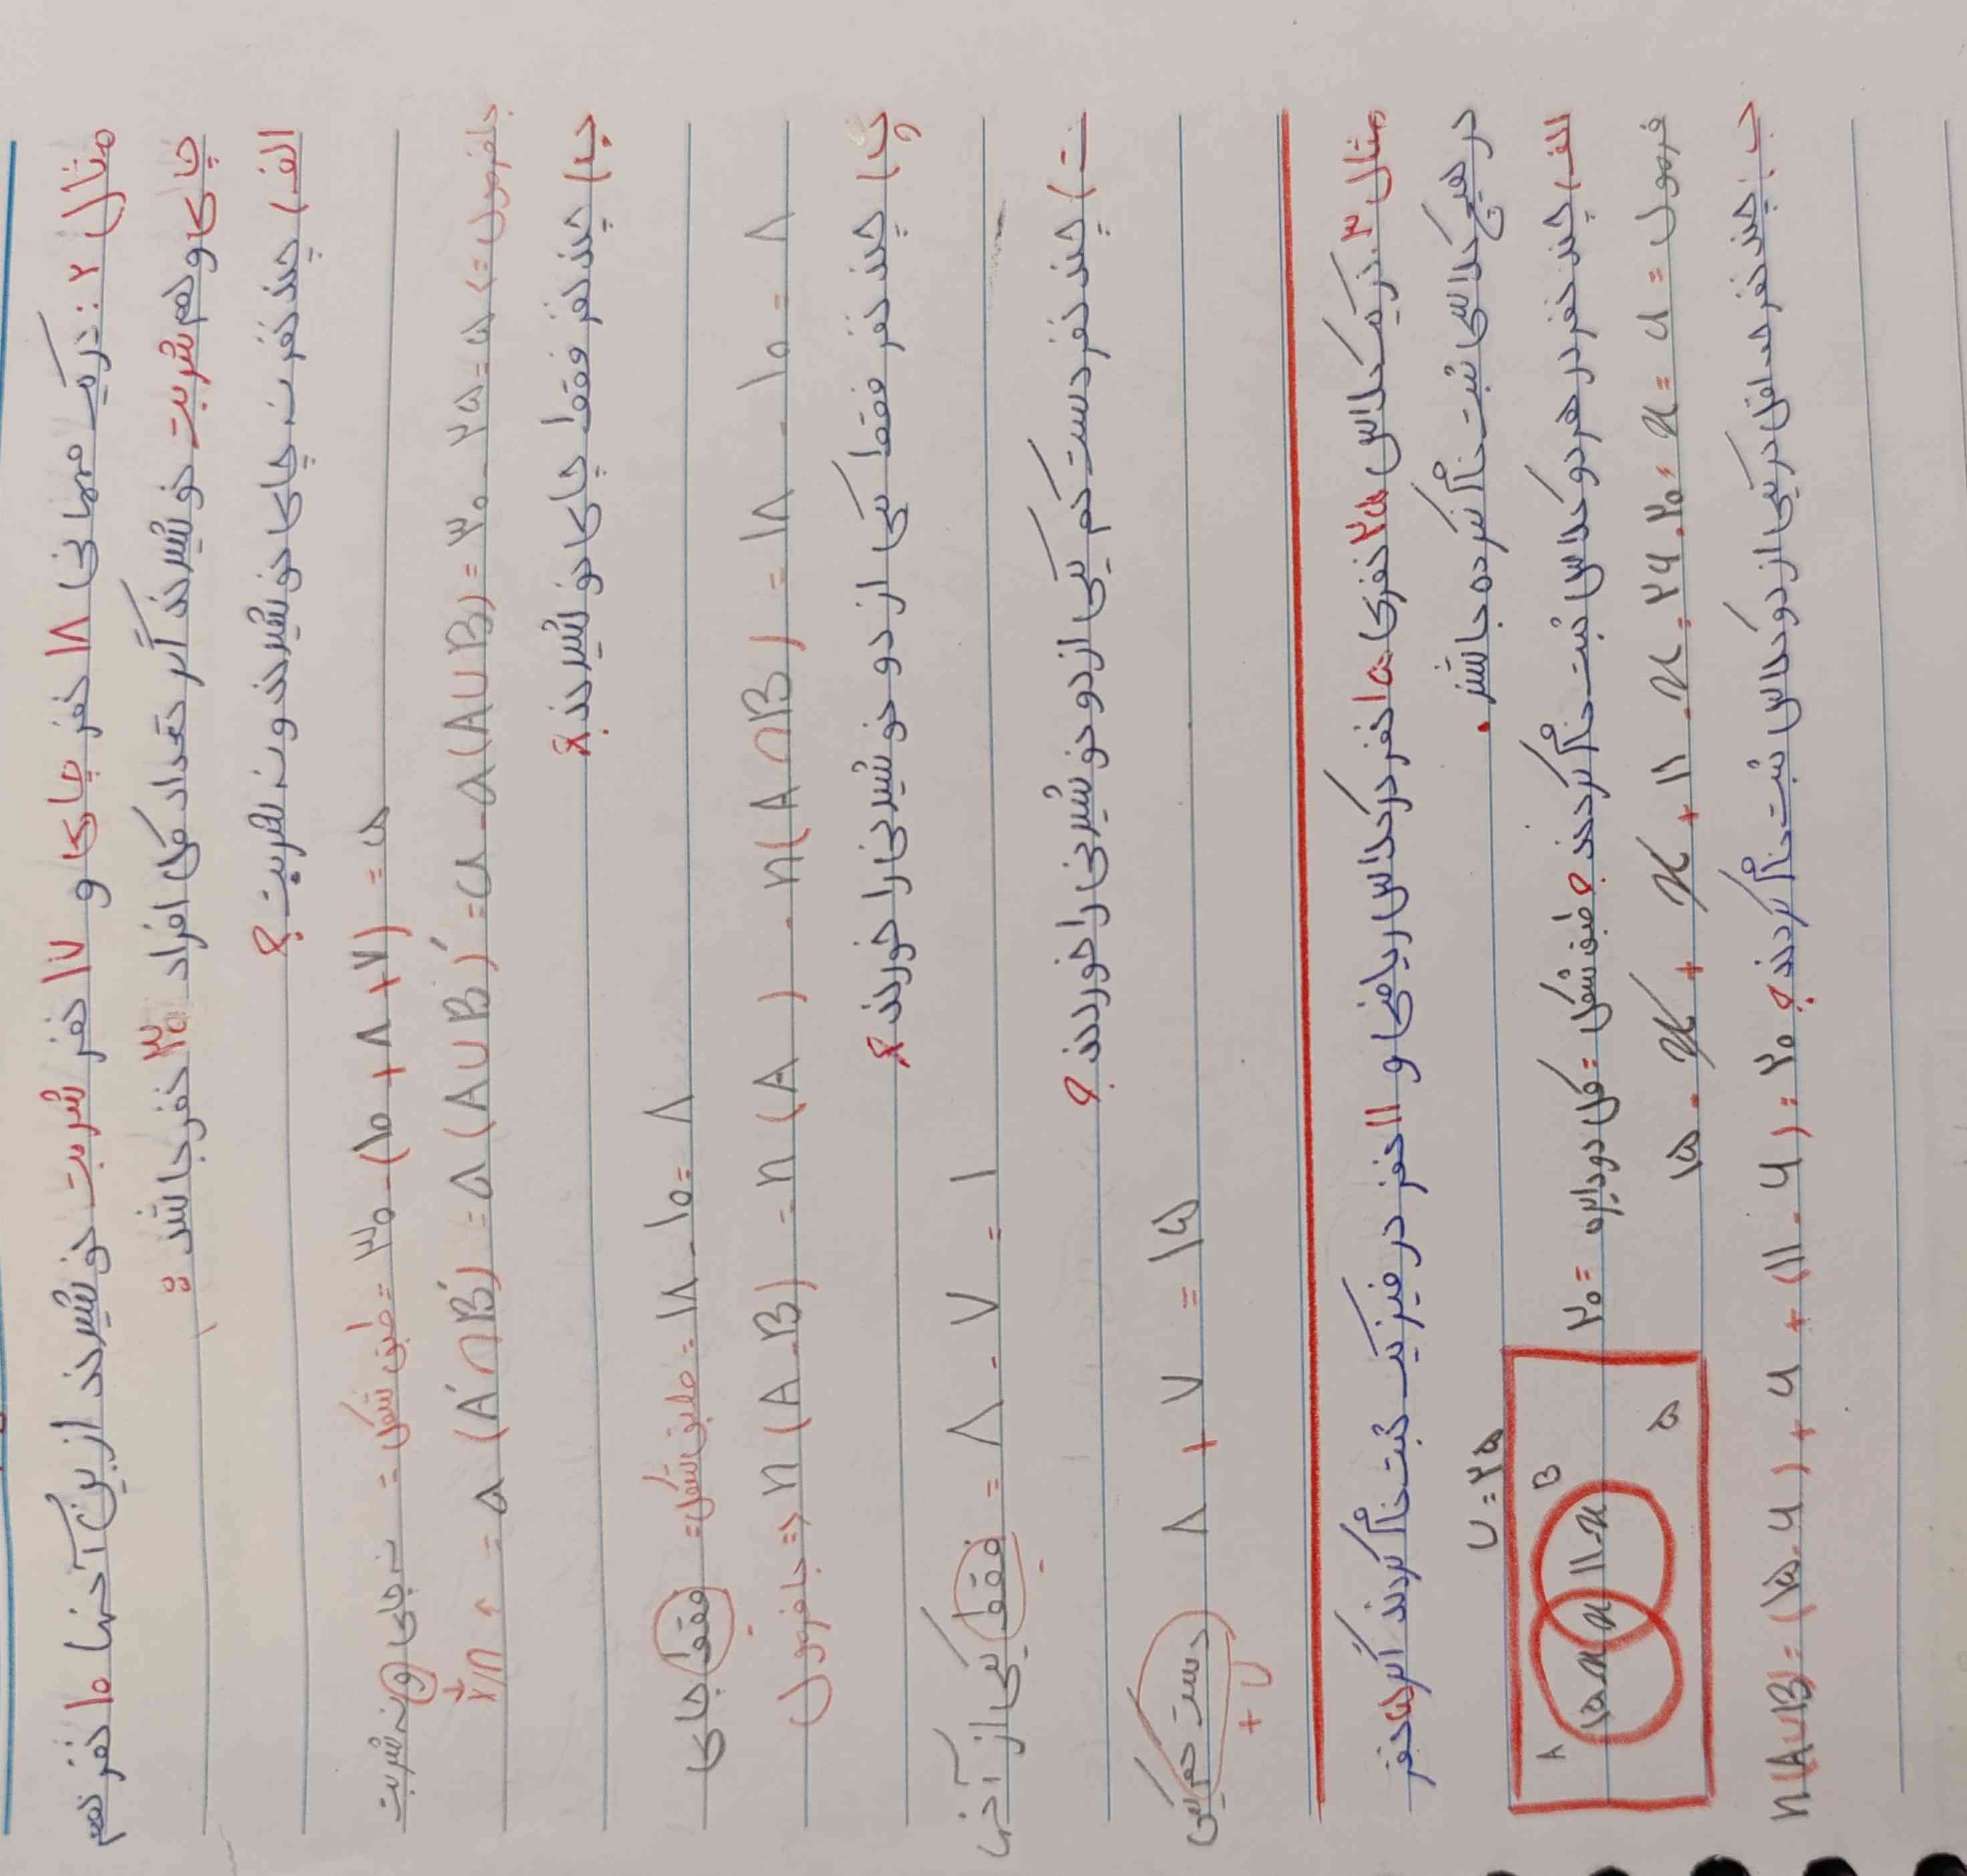 مثال ۲ : در یک مهمانی ۱۸ نفر چای و ۱۷ نفر شربت نوشیدند از بین آنها ۱۰ نفر هم
چای و هم شربت نوشیدند اگر تعداد کل افراد ۳۰ نفر باشد :
الف) چند نفر نه چای نوشیدند و نه شربت ؟
نه چای و نه شربت = طبق شکل = ۳۰ - (۱۰ + ۸ + ۷) = ۵
(A' ∩ B') = n (A ∪ B)' = U - n (A ∪ B) = ۳۰ - ۲۵ = ۵ <= بافرمول
ب) چند نفر فقط چای نوشیدند ؟
فقط چای = طبق شکل = ۱۸ - ۱۰ = ۸
بافرمول => n (A - B) = n (A) - n (A ∩ B) = ۱۸ - ۱۰ = ۸
پ) چند نفر فقط یکی از دو نوشیدنی را خوردند ؟
فقط یکی از آنها = ۸ - ۷ = ۱
ت) چند نفر دست کم یکی از دو نوشیدنی را خوردند ؟
دست کم یکی ۸ + ۷ = ۱۵
مثال ۳. در یک کلاس ۲۵ نفری ۱۵ نفر در کلاس ریاضی و ۱۱ نفر در فیزیک ثبت نام کردند اگر ۵ نفر
در هیچ کلاسی ثبت نام نکرده باشد.
الف) چند نفر در هر دو کلاس ثبت نام کردند ؟ طبق شکل = کل دو دایره = ۲۰
U = ۲۵
A B
۱۵-x x ۱۱-x
۵
۱۵ - x + x + ۱۱ - x = ۲۶ - ۲۰ = x = ۶ = فرمول
ب) چند نفر حداقل در یکی از دو کلاس ثبت نام کردند ؟
n(A∪B) = (۱۵ - ۶) + ۶ + (۱۱ - ۶) = ۲۰